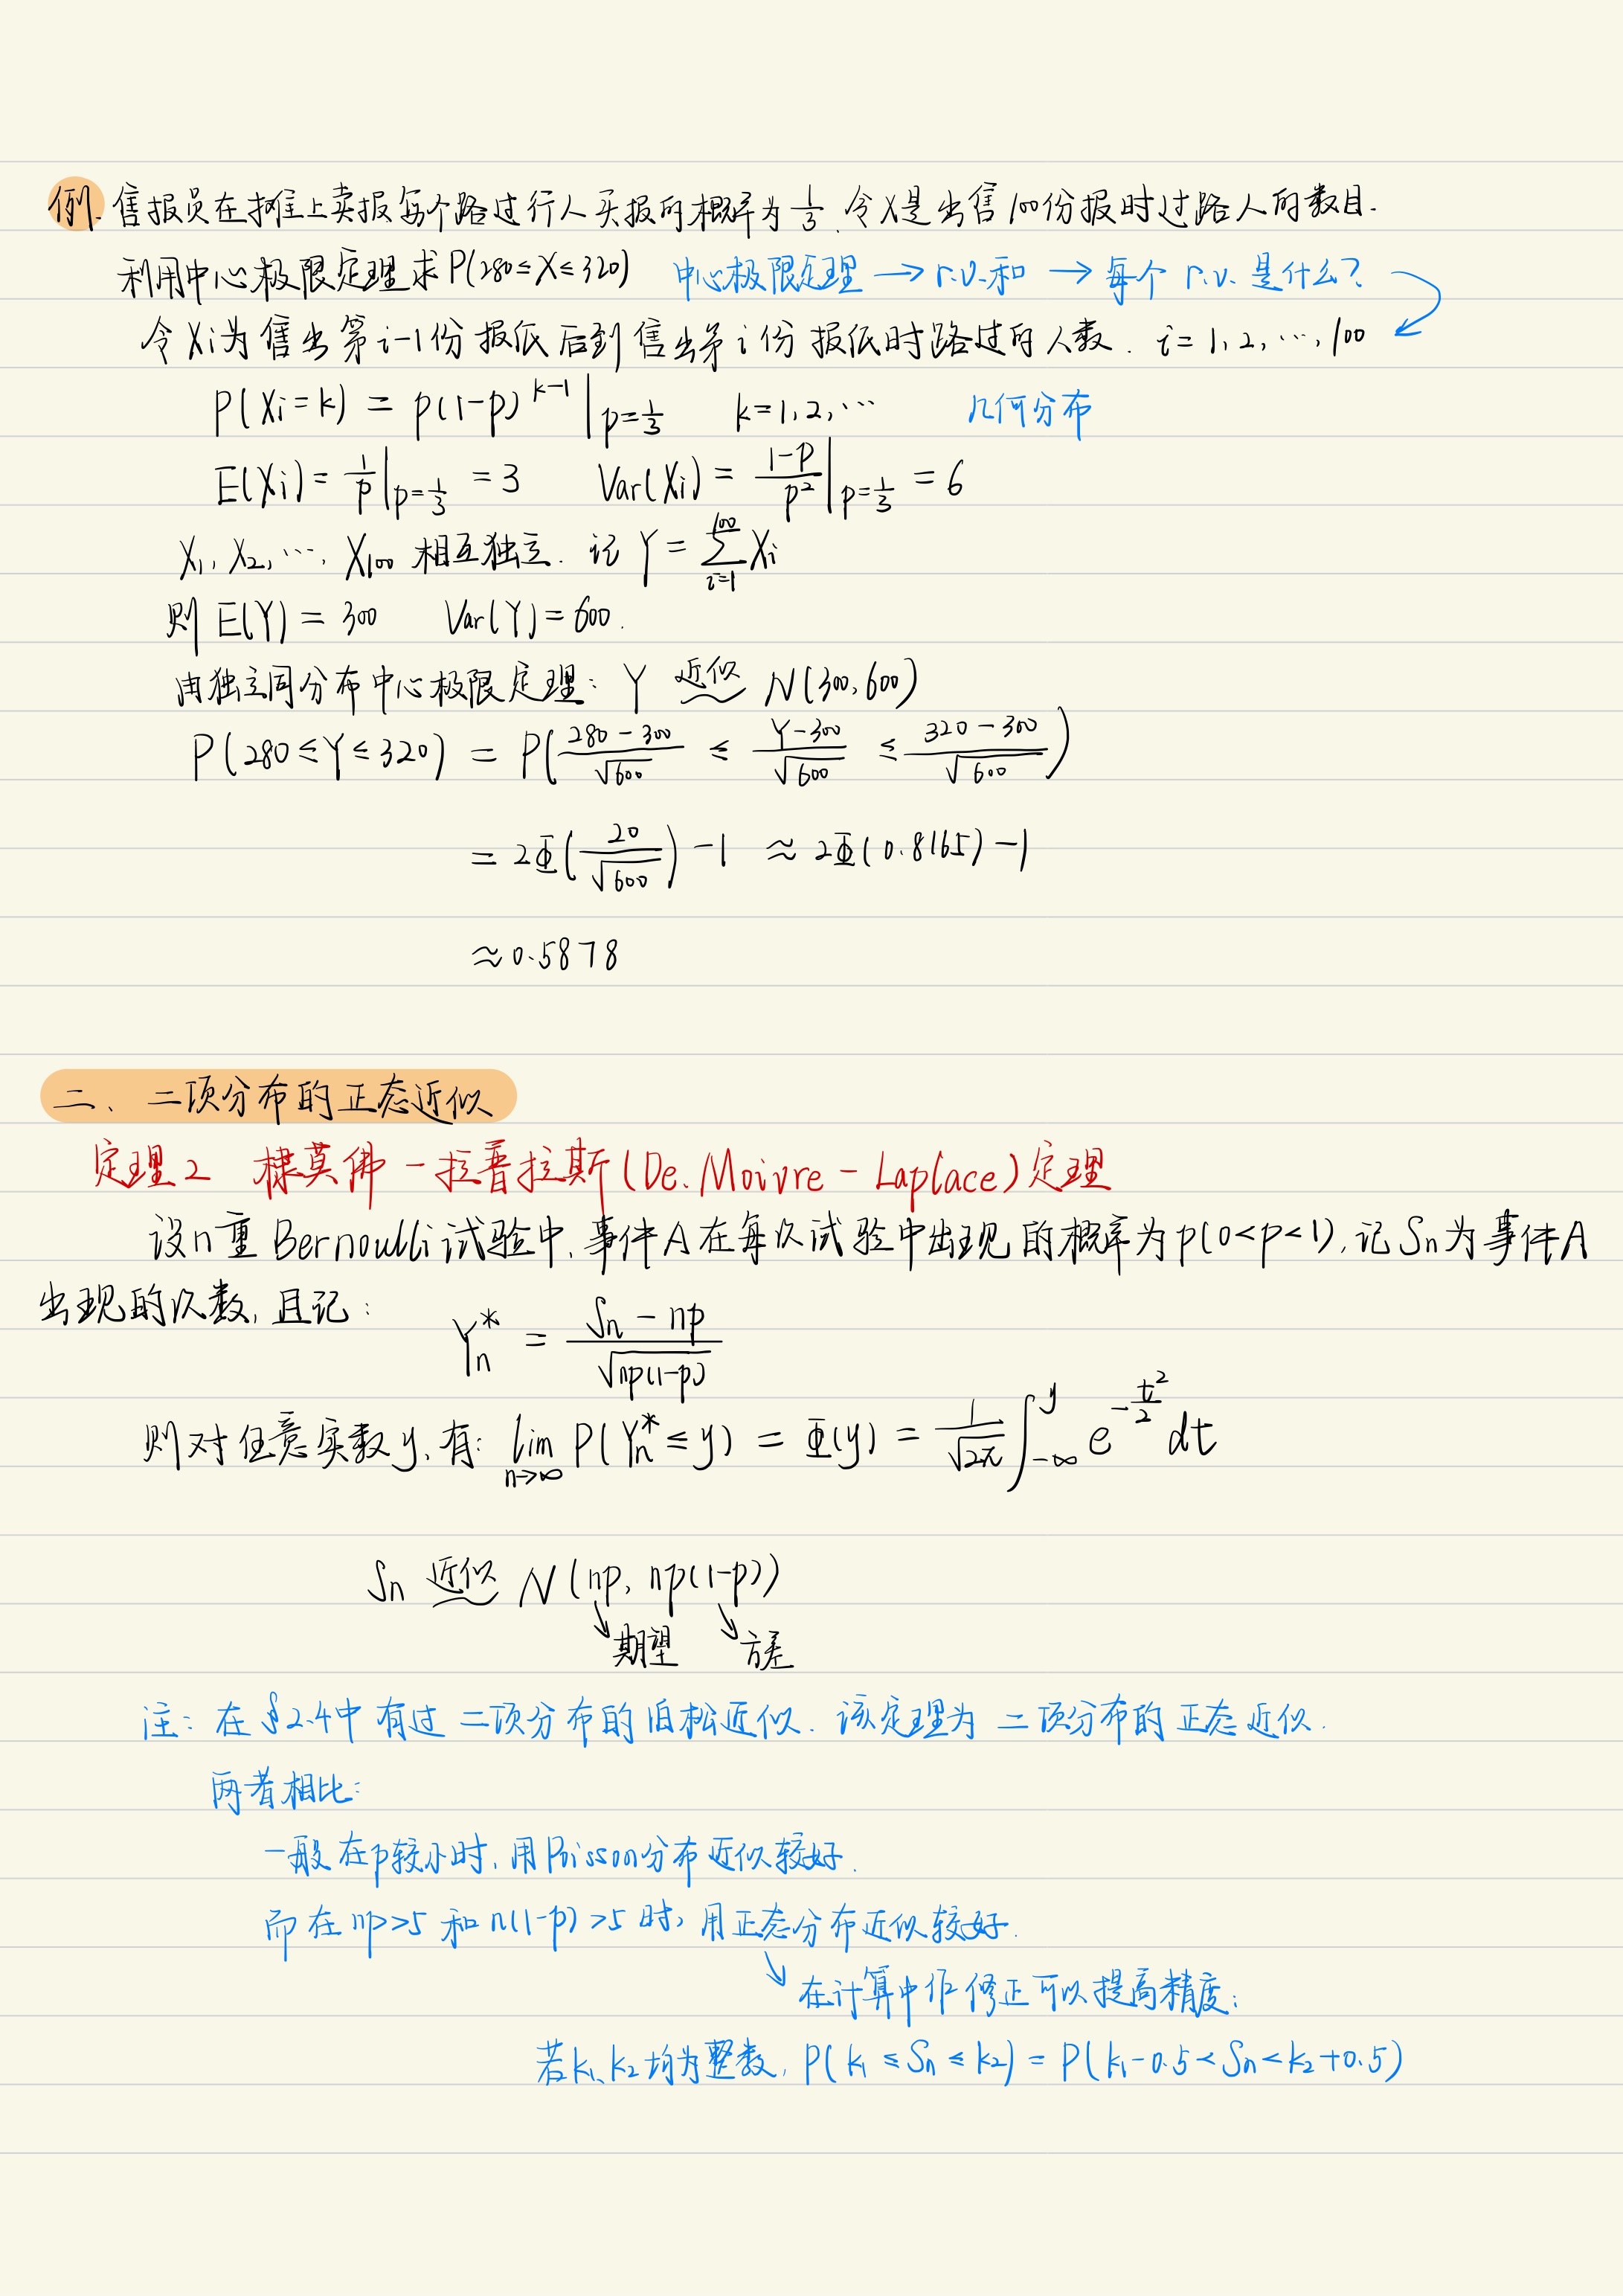 例. 售报员在摊上卖报每个路过行人买报的概率为 1/3. 令X是出售100份报时过路人的数目.
利用中心极限定理求P(280≤X≤320) 中心极限定理 → r.v.和 → 每个 r.v. 是什么?
令Xi为售出第i-1份报纸后到售出第i份报纸时路过的人数. i=1,2,…,100
P(Xi=k) = p(1-p)^{k-1}|_{p=1/3} k=1,2,… 几何分布
E(Xi)= 1/p|_{p=1/3} = 3 Var(Xi)= (1-p)/p²|_{p=1/3} = 6
X₁, X₂, …, X₁₀₀ 相互独立. 记 Y = ∑_{i=1}^{100} Xi
则 E(Y) = 300 Var(Y)=600.
由独立同分布中心极限定理: Y 近似~ N(300,600)
P(280≤Y≤320) = P((280-300)/√600 ≤ (Y-300)/√600 ≤ (320-300)/√600)
= 2Φ(20/√600) -1 ≈ 2Φ(0.8165) -1
≈ 0.5878
二、二项分布的正态近似
定理2 棣莫佛-拉普拉斯(De.Moivre - Laplace)定理
设n重Bernoulli试验中,事件A在每次试验中出现的概率为p(0<p<1),记Sn为事件A
出现的次数,且记:
Yn* = (Sn - np)/√(np(1-p))
则对任意实数y,有: lim_{n→∞} P(Yn*≤y) = Φ(y) = 1/√(2π) ∫_{-∞}^{y} e^{-t²/2} dt
Sn 近似~ N(np, np(1-p))
↘期望 ↘方差
注: 在§2.4中有过二项分布的泊松近似. 该定理为二项分布的正态近似.
两者相比:
一般在p较小时,用Poisson分布近似较好.
而在np>5和n(1-p)>5时,用正态分布近似较好.
↘ 在计算中作修正可以提高精度:
若k₁、k₂均为整数, P(k₁≤Sn≤k₂) = P(k₁-0.5<Sn<k₂+0.5)